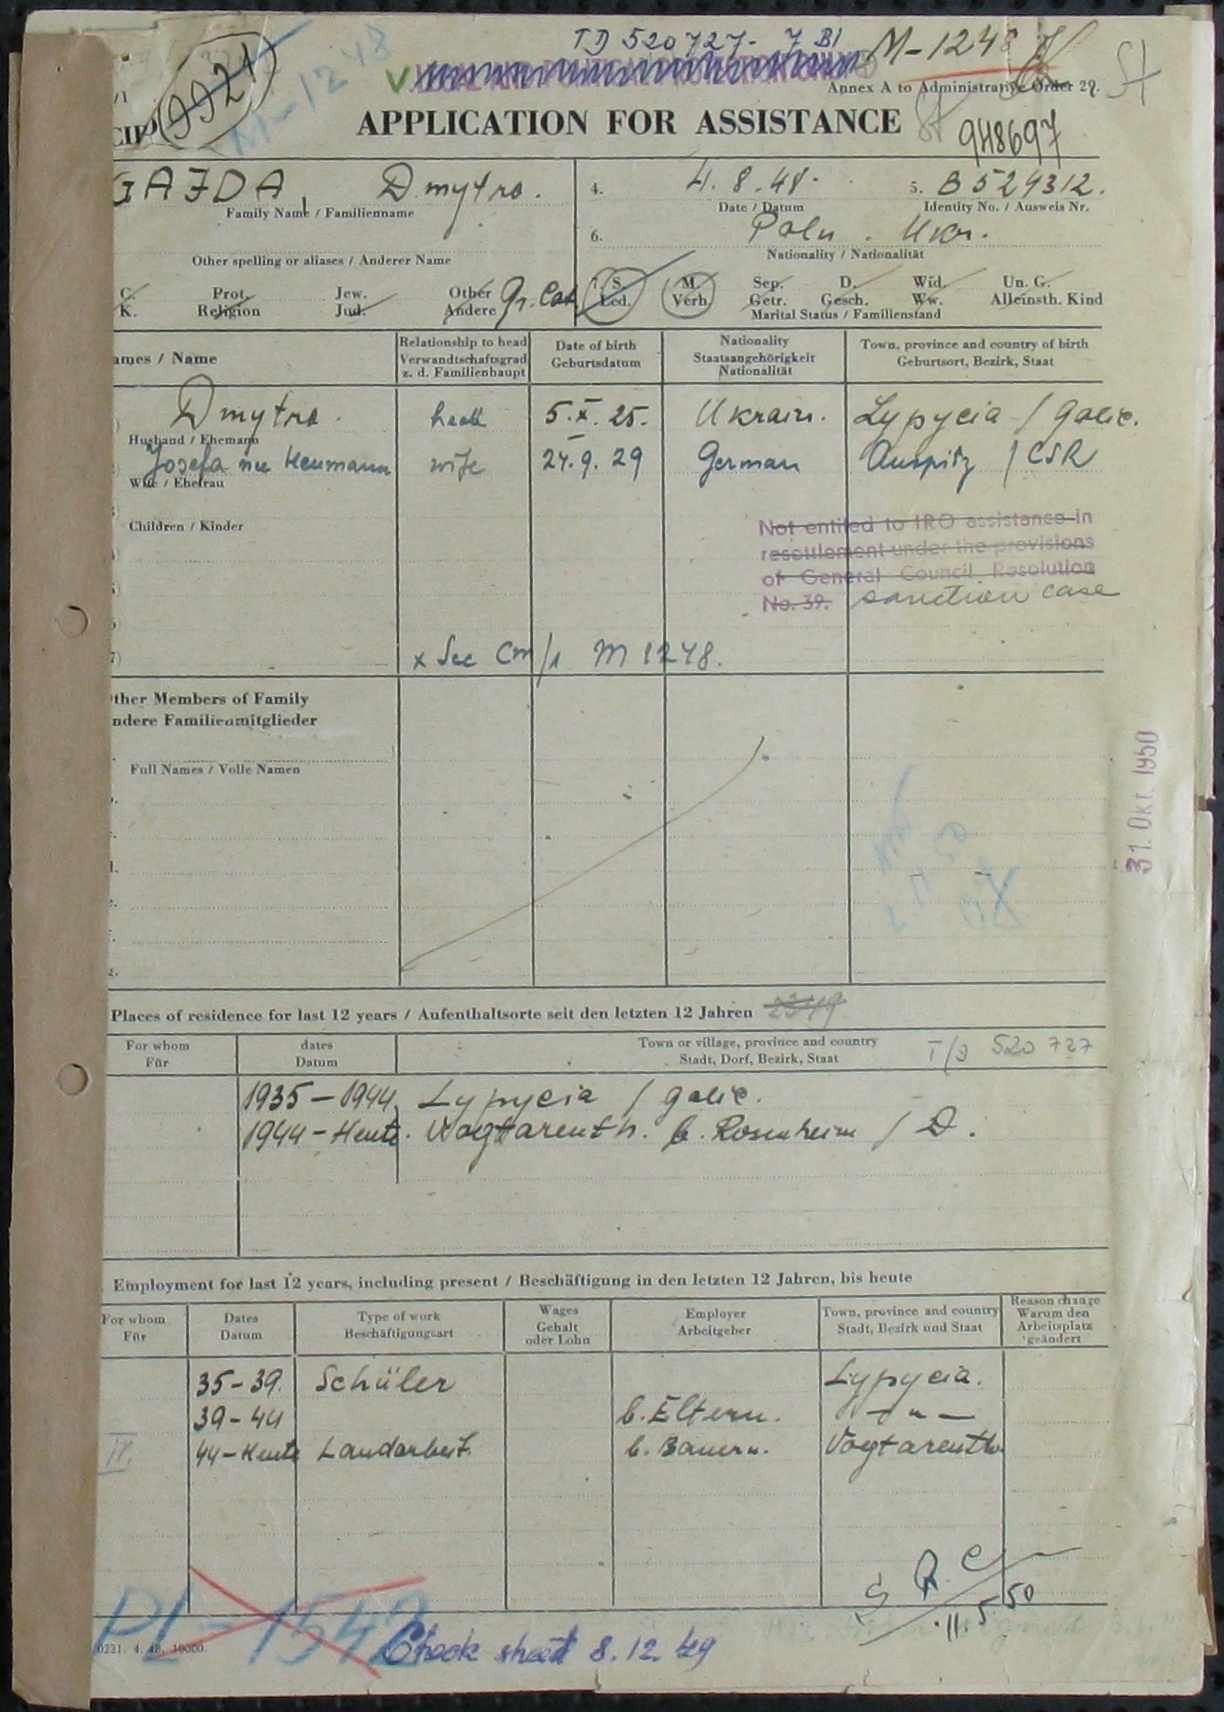 TD 520727- 7 Bl
M-1248
M-1248
9921
Annex A to Administrative Order 29.
St
APPLICATION FOR ASSISTANCE
St
948697
GAJDA, Dmytro.
Family Name / Familienname
4. 4.8.48.
Date / Datum
5. B529312.
Identity No. / Ausweis Nr.
6. Poln. Ukr.
Nationality / Nationalität
Other spelling or aliases / Anderer Name
C. Prot. Jew. Other Gr. Cat.
K. Religion Jud. Andere
S. M. Sep. D. Wid. Un. G.
Led. Verh. Getr. Gesch. Ww. Alleinsth. Kind
Marital Status / Familienstand
ames / Name
Relationship to head
Verwandtschaftsgrad
z. d. Familienhaupt
Date of birth
Geburtsdatum
Nationality
Staatsangehörigkeit
Nationalität
Town, province and country of birth
Geburtsort, Bezirk, Staat
Dmytro. head 5.X.25. Ukrain. Lypycia / Galic.
Husband / Ehemann
Josefa nee Neumann wife 24.9.29 German Auspitz / CSR
Wife / Ehefrau
Children / Kinder
Not entitled to IRO assistance in
resettlement under the provisions
of General Council Resolution
No. 39. sanction case
x See Cm/1 M 1248.
ther Members of Family
ndere Familienmitglieder
Full Names / Volle Namen
31. Okt. 1950
Places of residence for last 12 years / Aufenthaltsorte seit den letzten 12 Jahren 2349
For whom
Für
dates
Datum
Town or village, province and country
Stadt, Dorf, Bezirk, Staat
T/D 520 727
1935-1944 Lypycia / Galic.
1944-Heute. Vogtareuth. b. Rosenheim / D.
Employment for last 12 years, including present / Beschäftigung in den letzten 12 Jahren, bis heute
For whom
Für
Dates
Datum
Type of work
Beschäftigungsart
Wages
Gehalt
oder Lohn
Employer
Arbeitgeber
Town, province and country
Stadt, Bezirk und Staat
Reason change
Warum den
Arbeitsplatz
geändert
35-39. Schüler Lypycia.
39-44 b. Eltern. -"-
44-Heute Landarbeit. b. Bauern. Vogtareuth
11.5.50
PL-1542
0231. 4. 48. 10000.
Check sheet 8.12.49